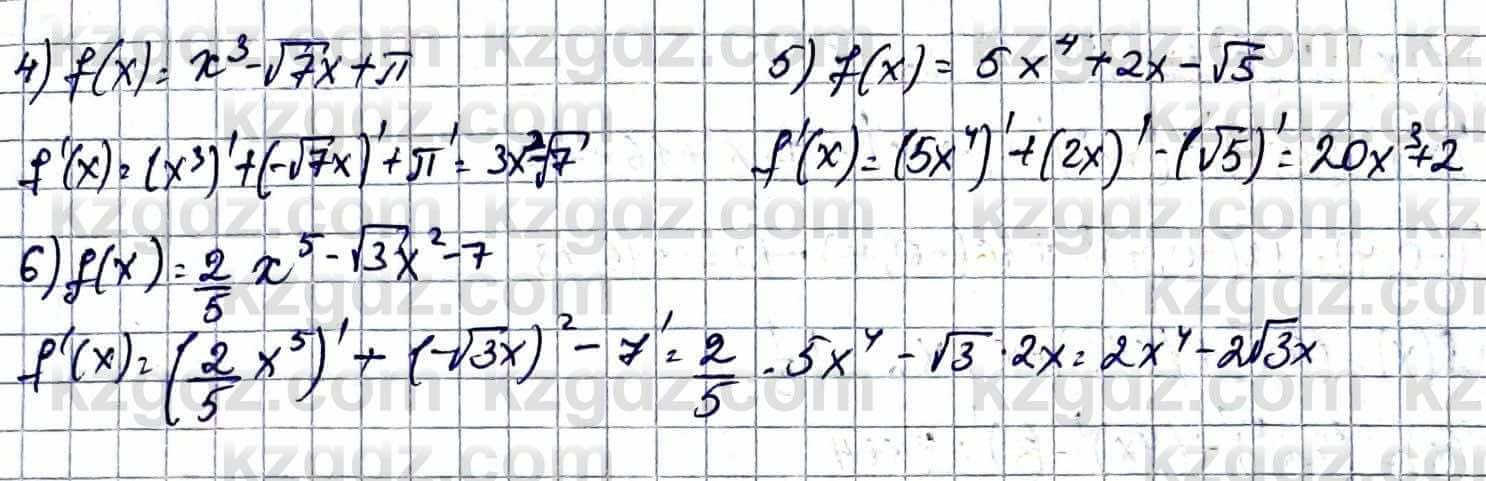 4) f(x) = x³ - √7x + π
f'(x) = (x³)' + (-√7x)' + π' = 3x² - √7
5) f(x) = 5x⁴ + 2x - √5
f'(x) = (5x⁴)' + (2x)' - (√5)' = 20x³ + 2
6) f(x) = 2/5 x⁵ - √3x² - 7
f'(x) = (2/5 x⁵)' + (-√3x)² - 7' = 2/5 · 5x⁴ - √3 · 2x = 2x⁴ - 2√3x
kzgdz.com